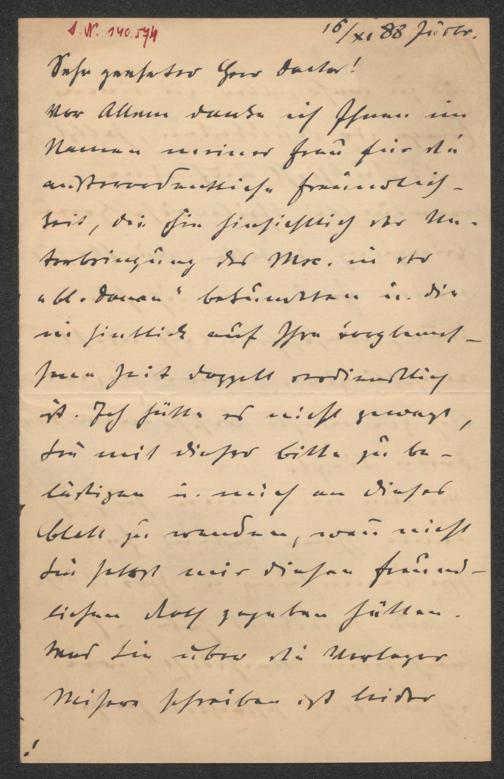 I. N. 140.574
16/XI 88 
Sehr geehrter Herr Doctor!
Vor Allem danke ich Ihnen im
Namen meiner Frau für die
außerordentliche Freundlich-
keit, die Sie hinsichtlich der Un-
terbringung des Msc. in der
"bl. Donau" bekundeten u. die
im Hinblick auf Ihre
Zeit doppelt verdienstlich
ist. Ich hätte es nicht gewagt,
Sie mit dieser Bitte zu be-
lästigen u. mich an dieses
Blatt zu wenden, wenn nicht
Sie selbst mir diesen freund-
lichen Rath gegeben hätten.
Was Sie über die Verleger
Misere schreiben ist leider